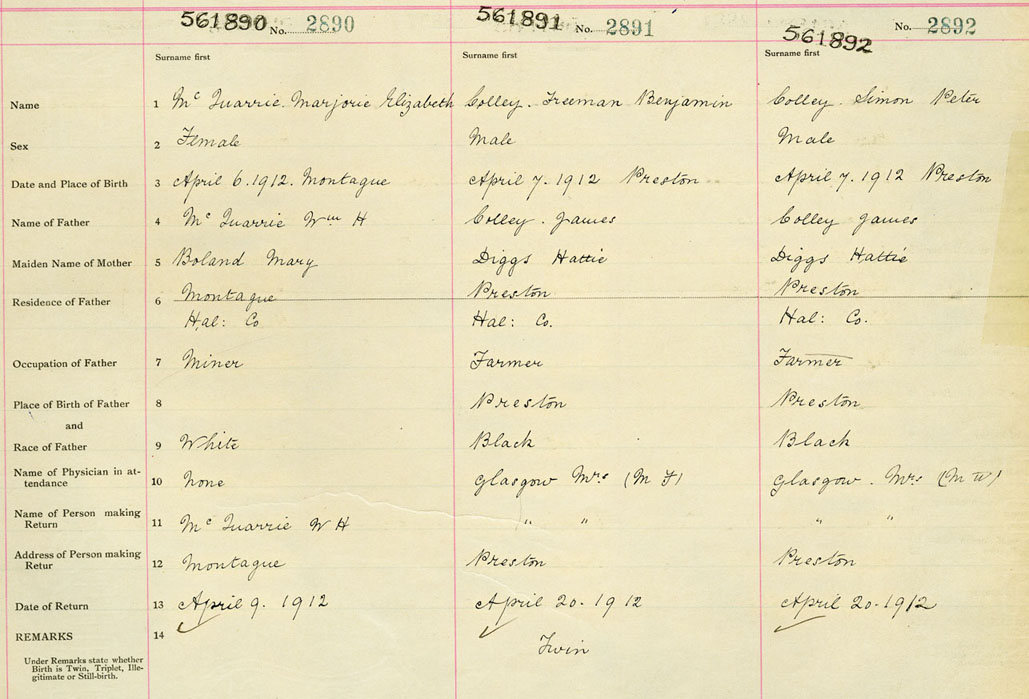 561890 No. 2890 561891 No. 2891 561892 No. 2892
Surname first Surname first Surname first
Name 1 Mc Quarrie. Marjorie Elizabeth Colley. Freeman Benjamin Colley. Simon Peter
Sex 2 Female Male Male
Date and Place of Birth 3 April 6. 1912. Montague April 7. 1912 Preston April 7. 1912 Preston
Name of Father 4 Mc Quarrie Wm H Colley. James Colley James
Maiden Name of Mother 5 Boland Mary Diggs Hattie Diggs Hattie
Residence of Father 6 Montague Preston Preston
Hal: Co Hal: Co. Hal: Co.
Occupation of Father 7 Miner Farmer Farmer
Place of Birth of Father 8 Preston Preston
and
Race of Father 9 White Black Black
Name of Physician in at-
tendance 10 None Glasgow Mrs (M Glasgow. Mrs (M W)
Name of Person making
Return 11 Mc Quarrie W H " " " "
Address of Person making
Retur 12 Montague Preston Preston
Date of Return 13 April 9. 1912 April 20. 1912 April 20. 1912
REMARKS 14 Twin
Under Remarks state whether
Birth is Twin, Triplet, Ille-
gitimate or Still-birth.